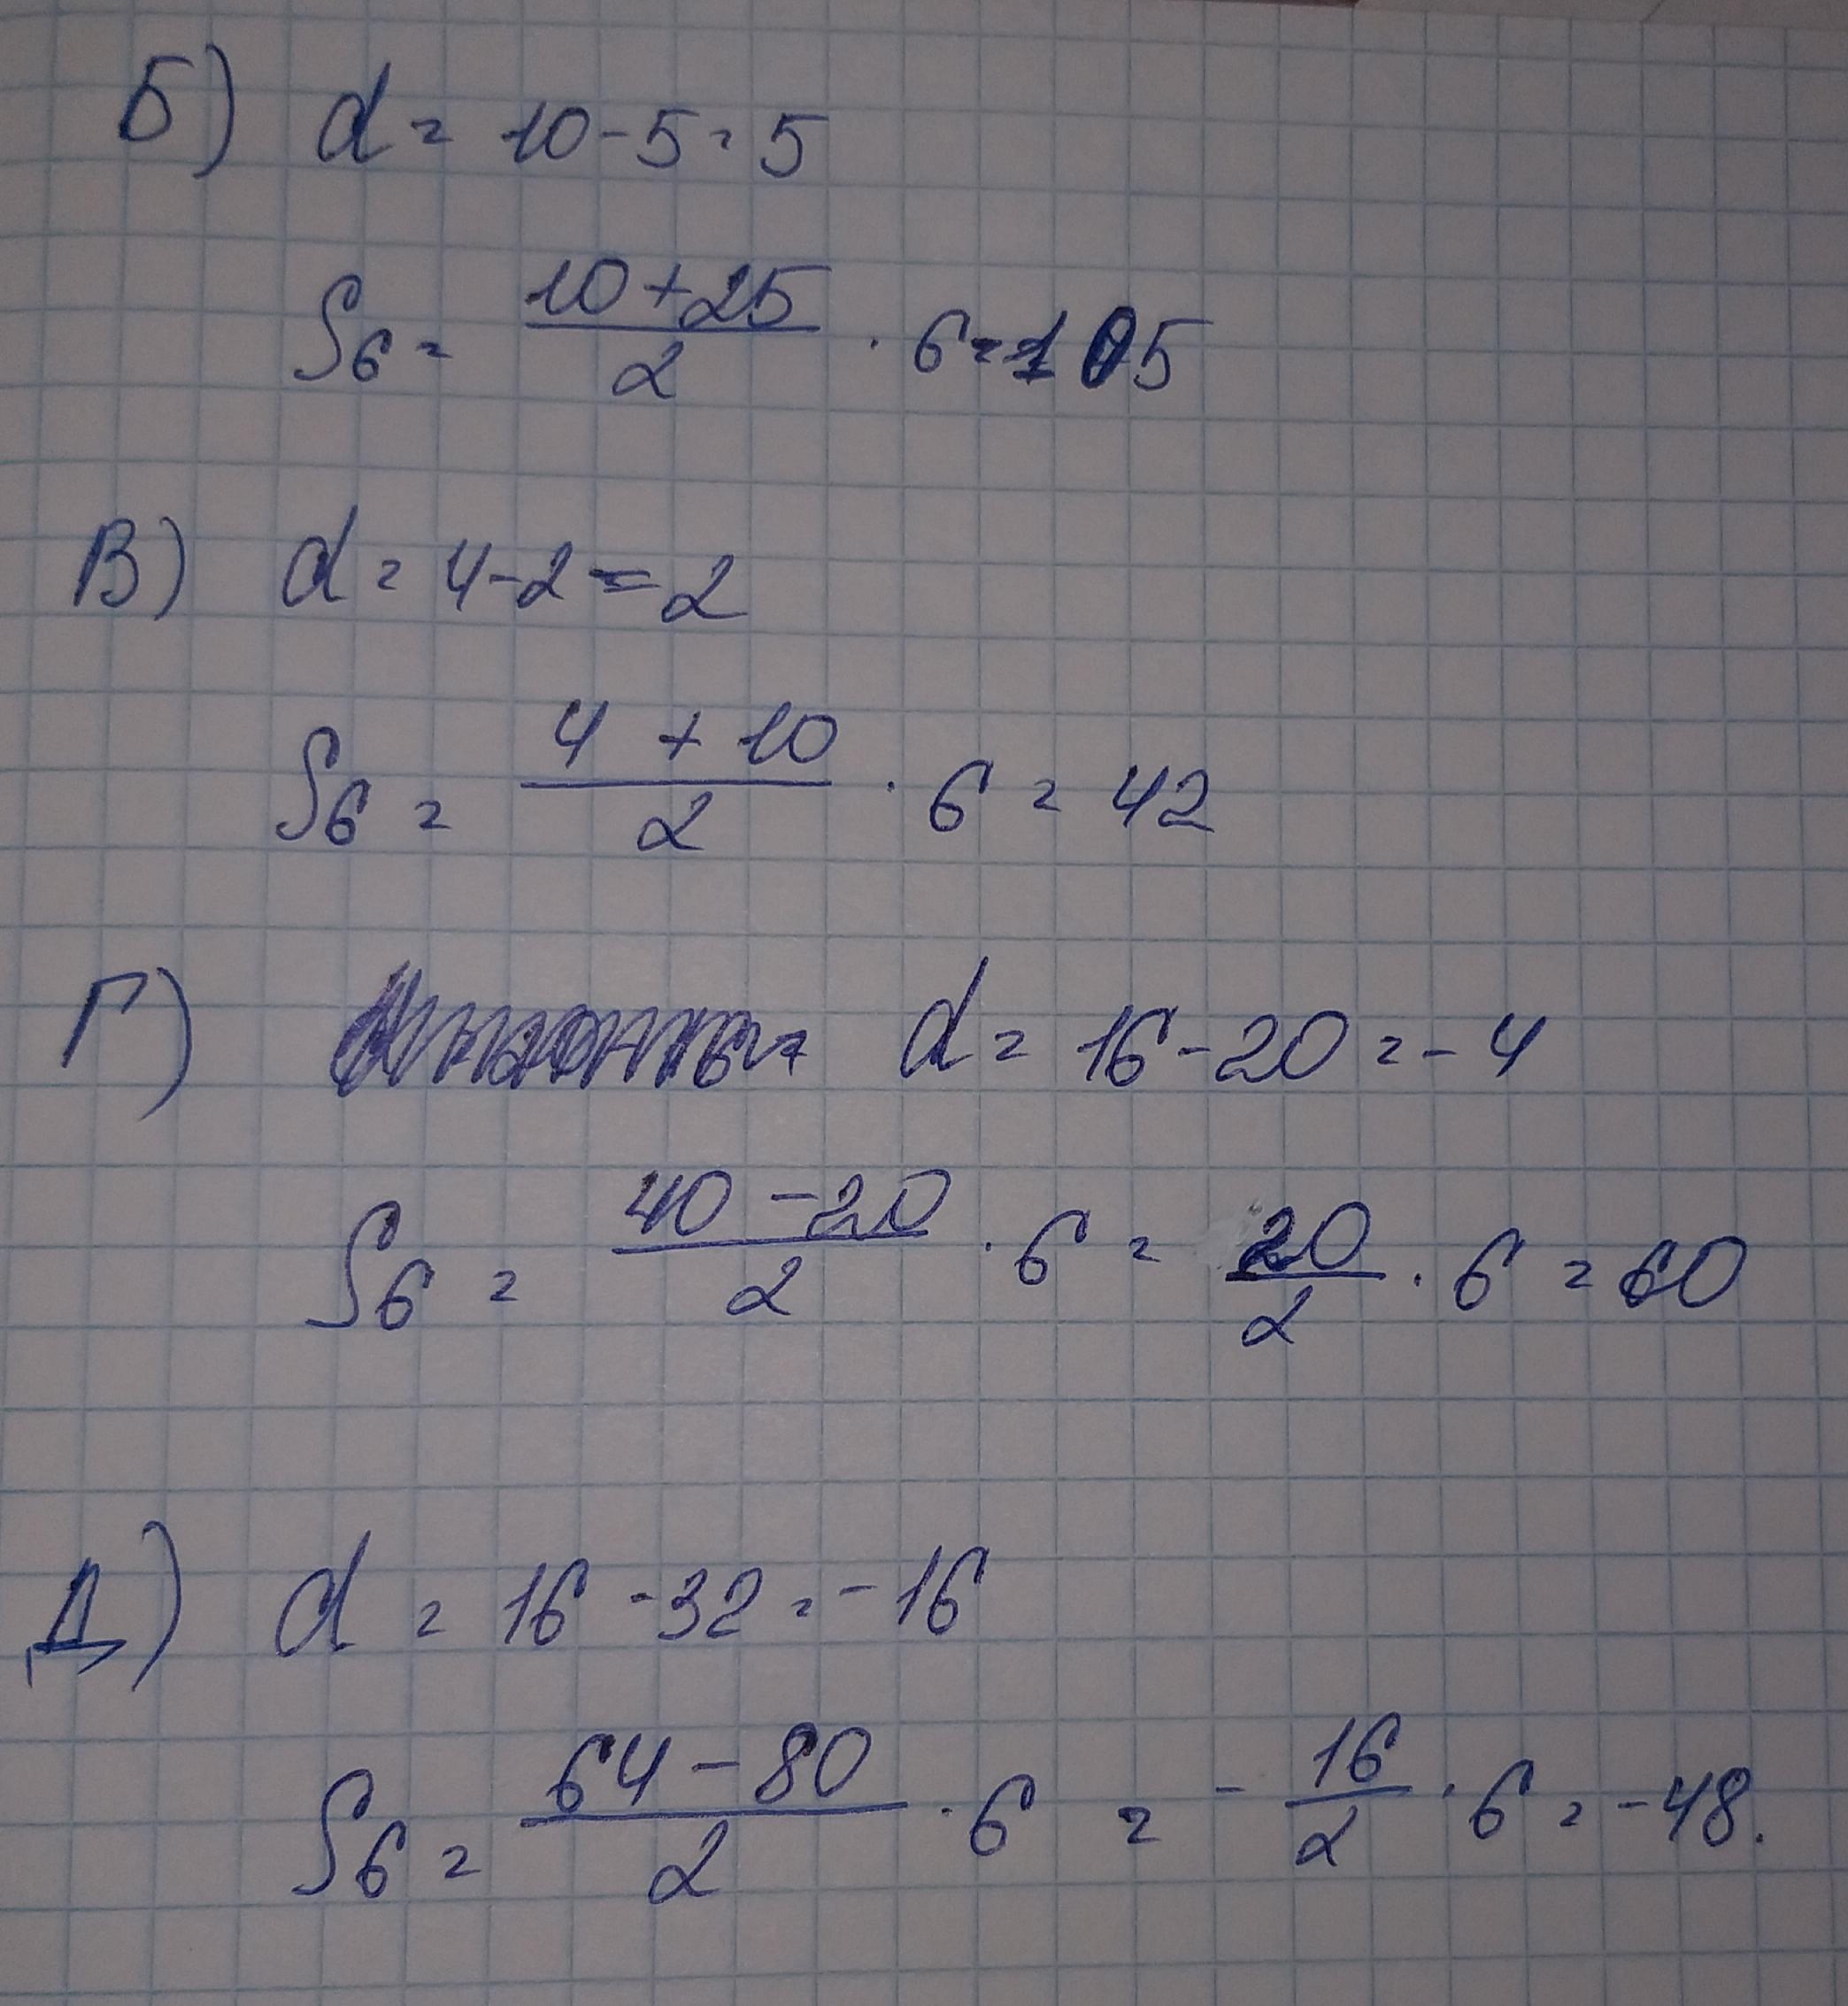 Б) d = 10 - 5 = 5
S₆ = (10 + 25)/2 · 6 = 105
В) d = 4 - 2 = 2
S₆ = (4 + 10)/2 · 6 = 42
Г) d = 16 - 20 = - 4
S₆ = (40 - 20)/2 · 6 = 20/2 · 6 = 60
Д) d = 16 - 32 = - 16
S₆ = (64 - 80)/2 · 6 = - 16/2 · 6 = - 48.